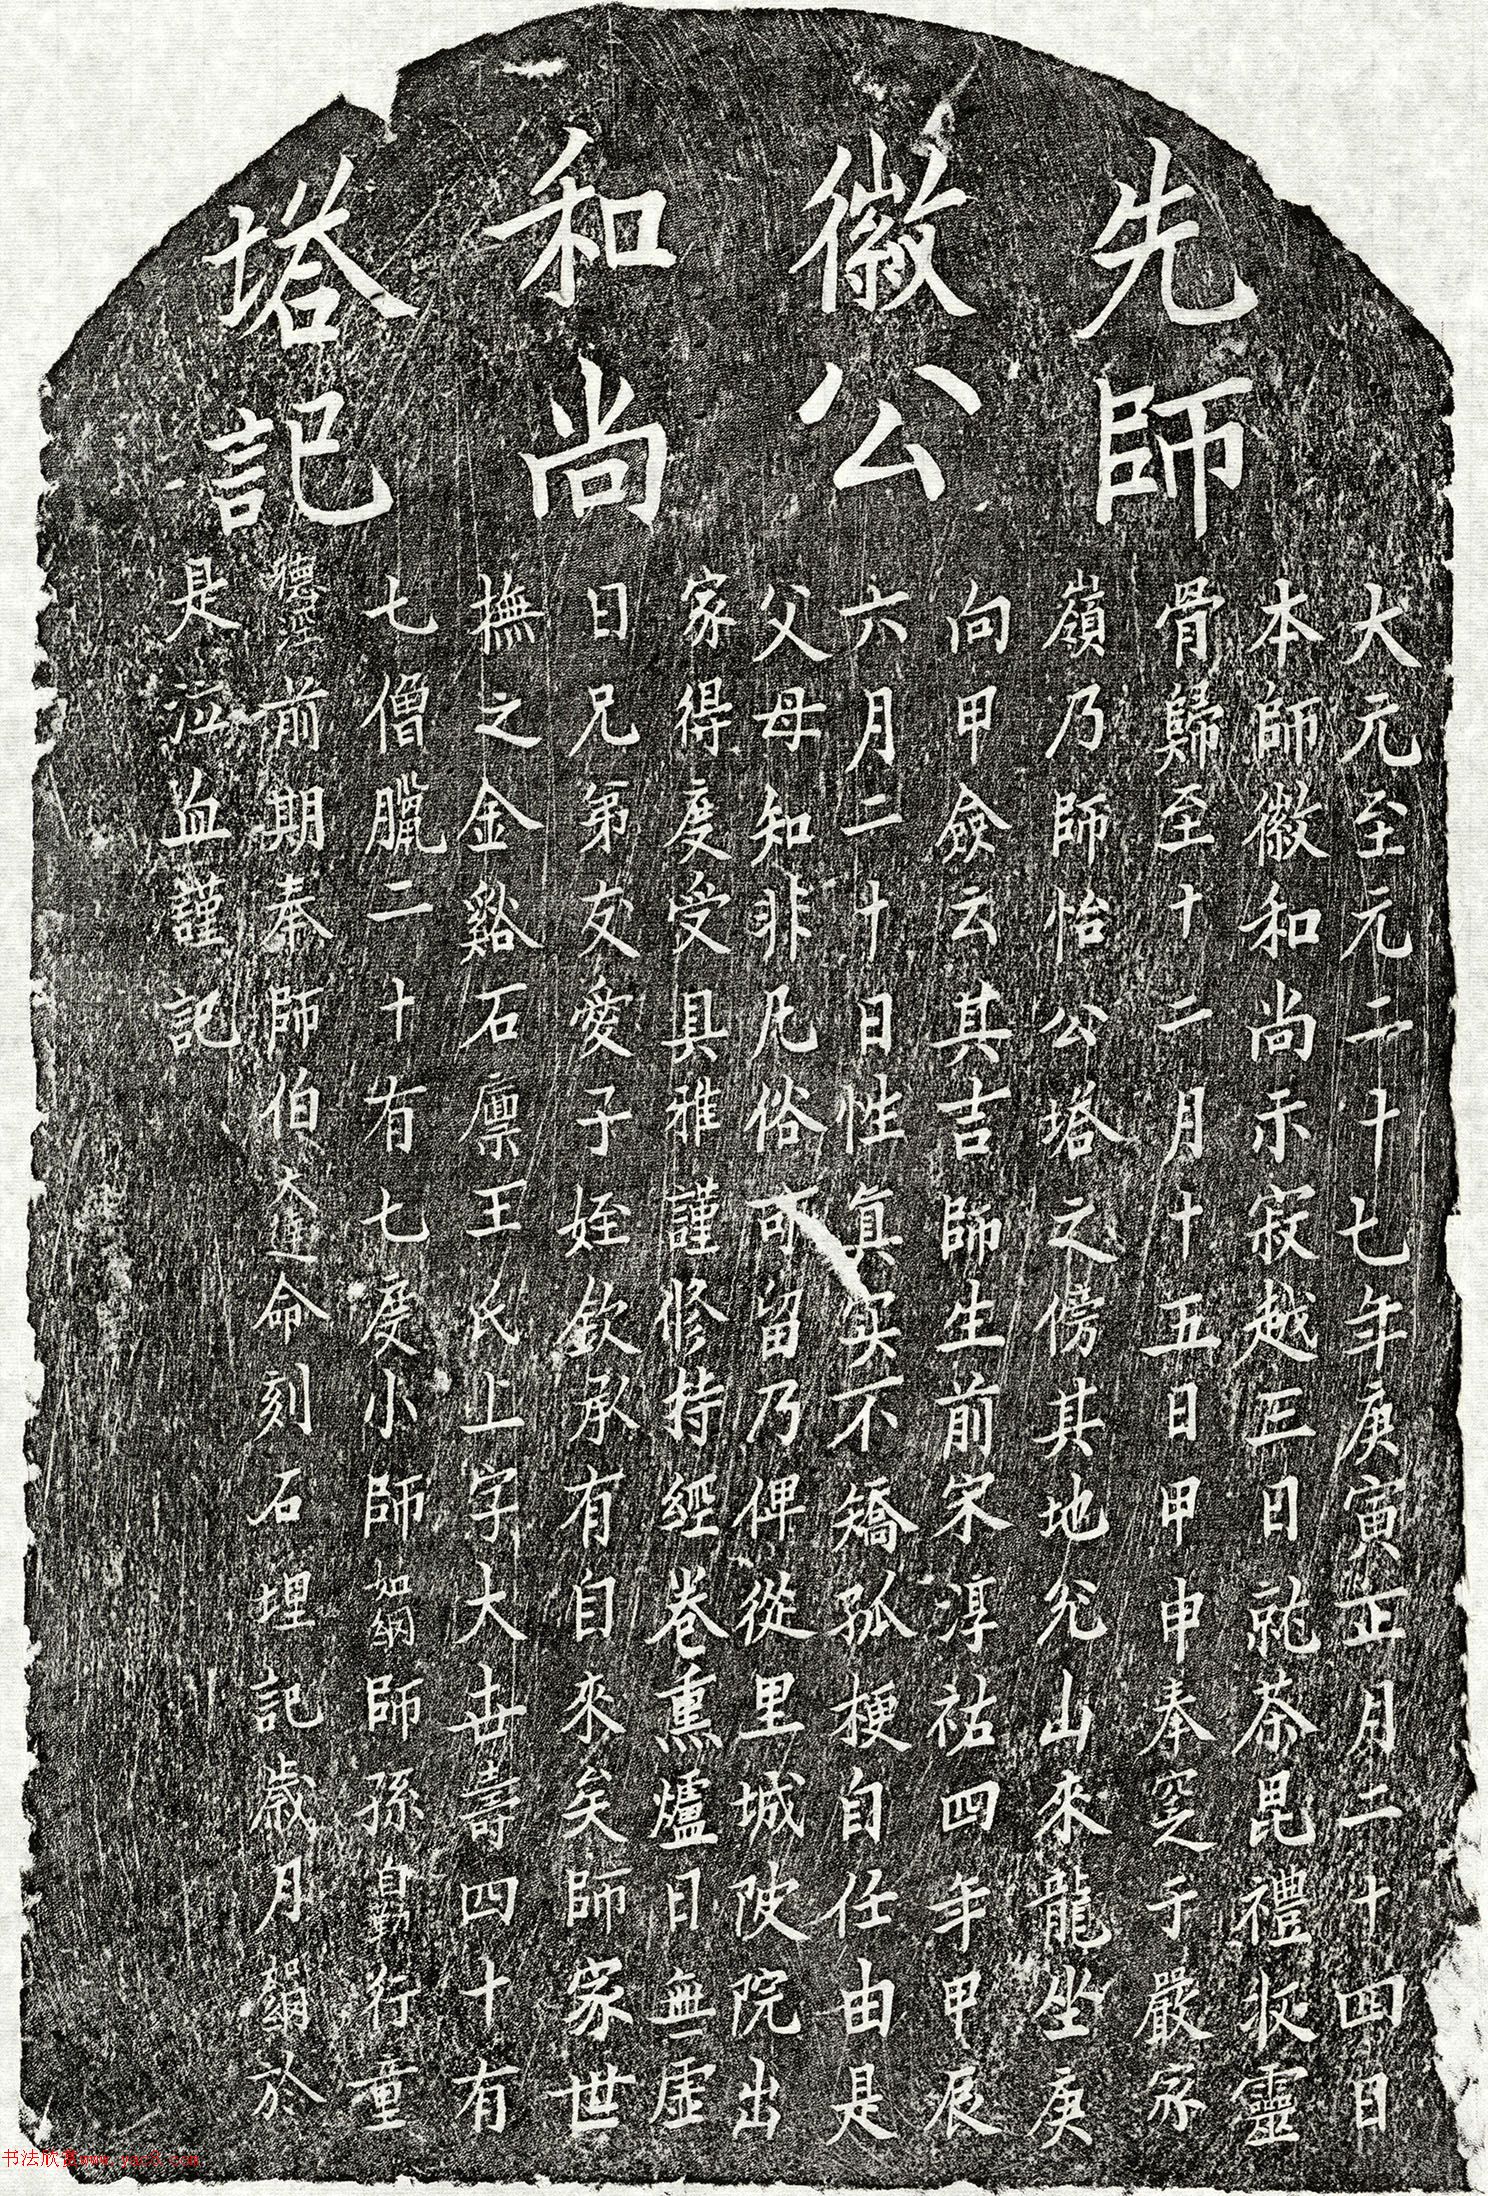 先師
徽公
和尚
塔記
大元至元二十七年庚寅正月二十四日
本師徽和尚示寂越三日就荼毘禮收靈
骨歸至十二月十五日甲申奉窆于嚴家
嶺乃師怡公塔之傍其地兊山來龍坐庚
向甲僉云其吉師生前宋淳祐四年甲辰
六月二十日性真实不矯孤梗自任由是
父母知非凡俗可留乃俾從里城陂院出
家得度受具雅謹修持經卷熏爐日無虛
日兄第友愛子姪欽承有自來矣師家世
撫之金谿石廪王氏上字大世壽四十有
七僧臘二十有七度小師如綱師孫自勤行童
德堅前期奉師伯大達命刻石埋記歲月綱於
是泣血謹記
书法欣赏www.yac8.com